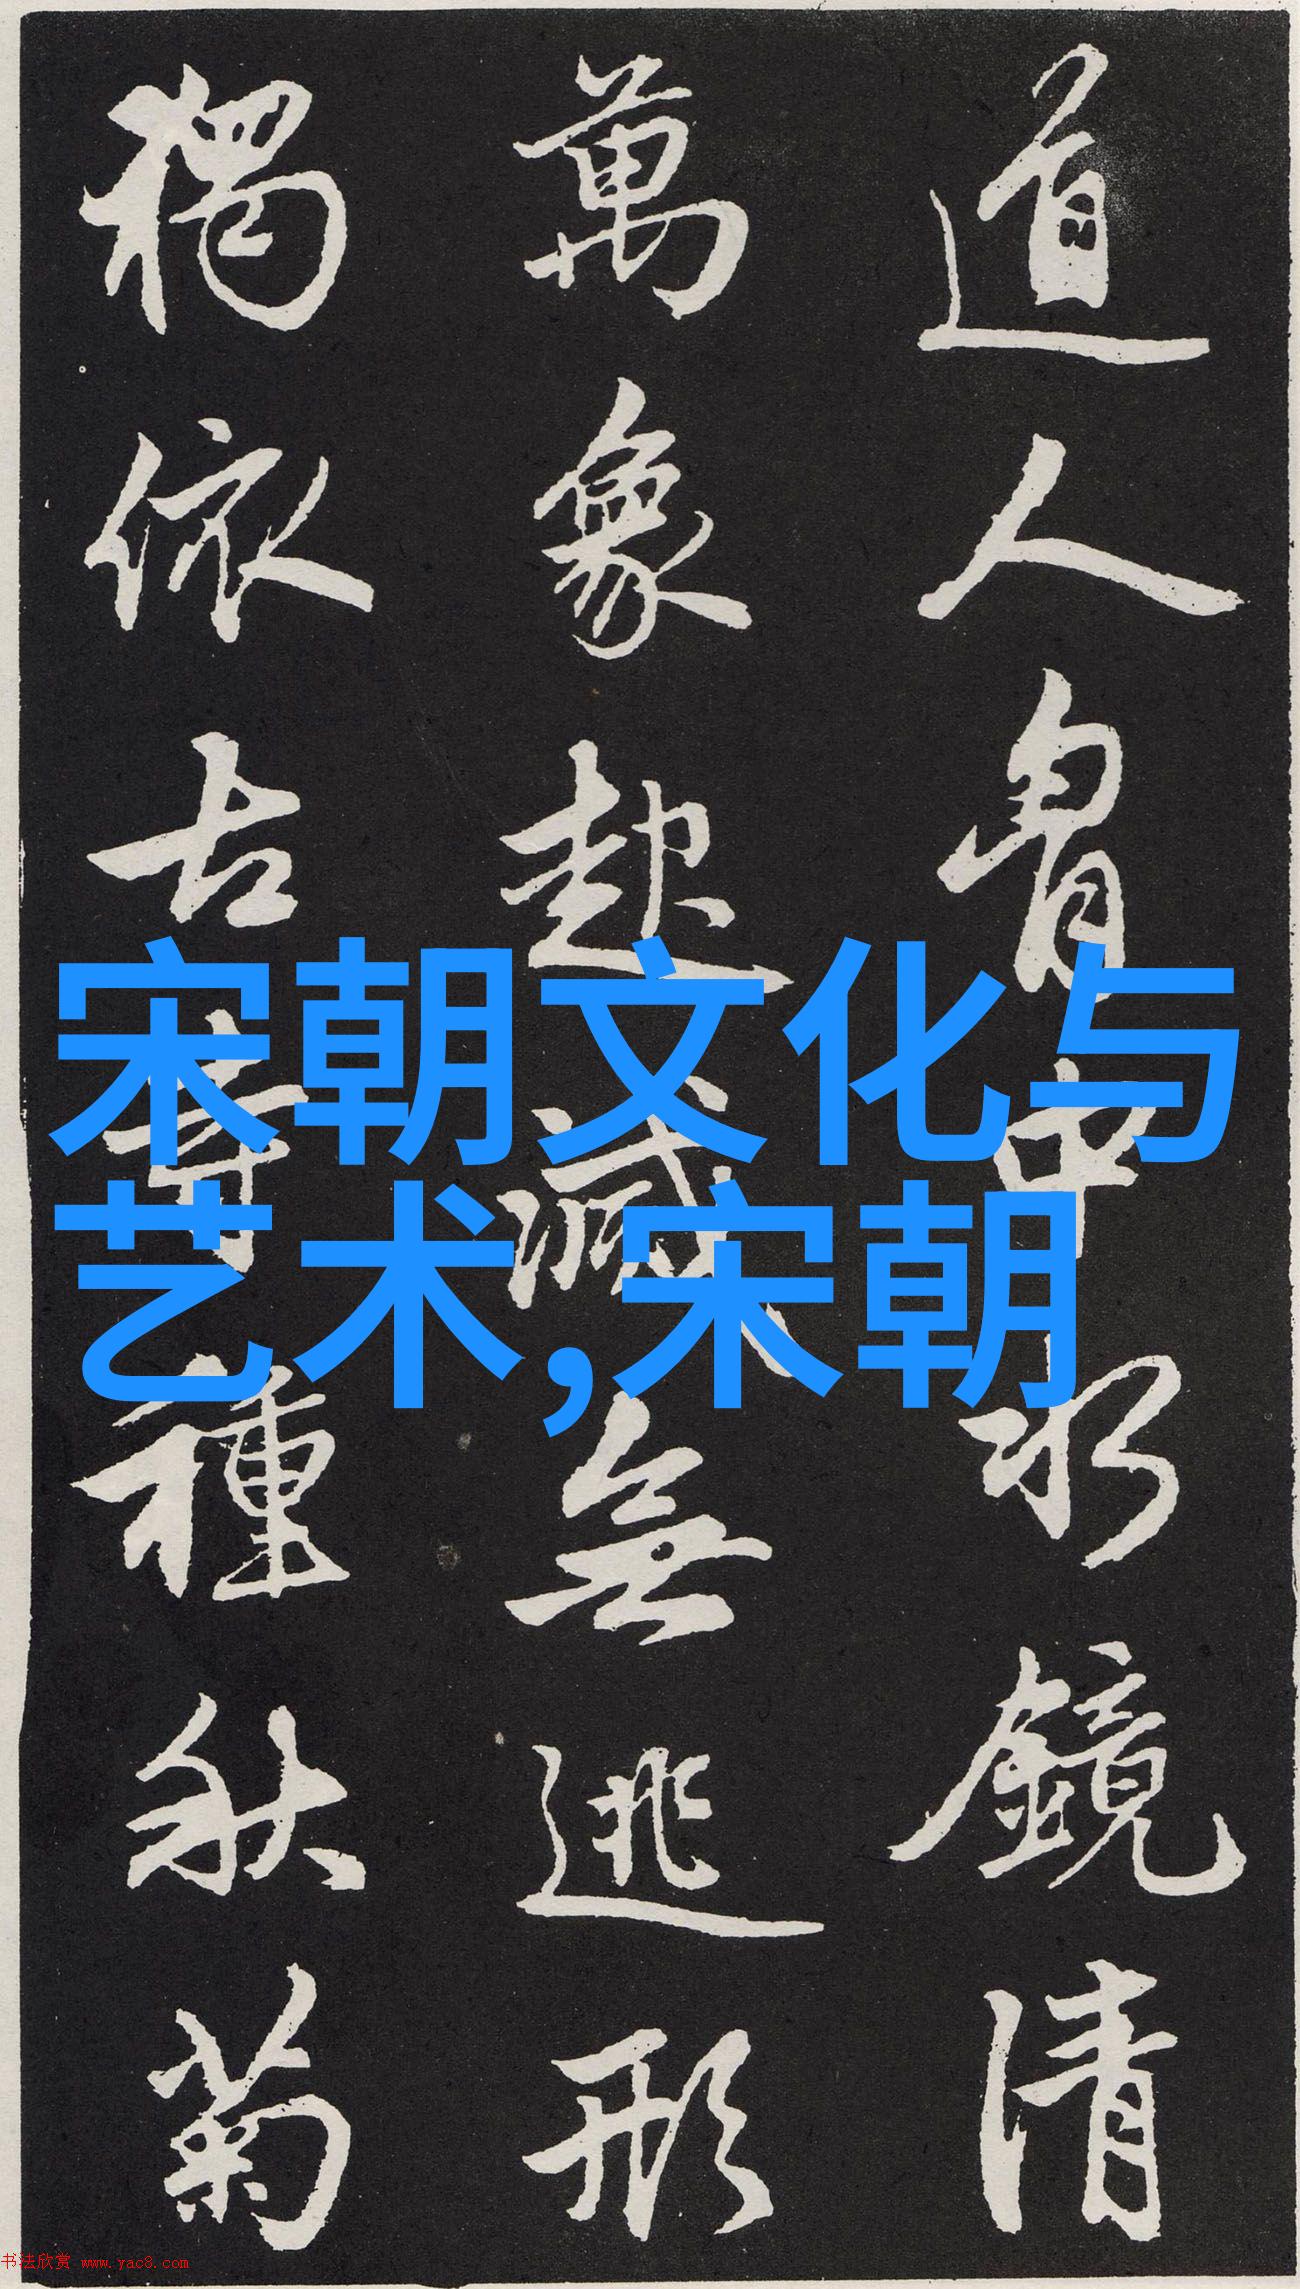 道人胷中水鏡清
萬象起滅無逃形
獨依古寺種秋菊
宋朝文化与
艺术,宋朝
书法欣赏 www.yac8.com